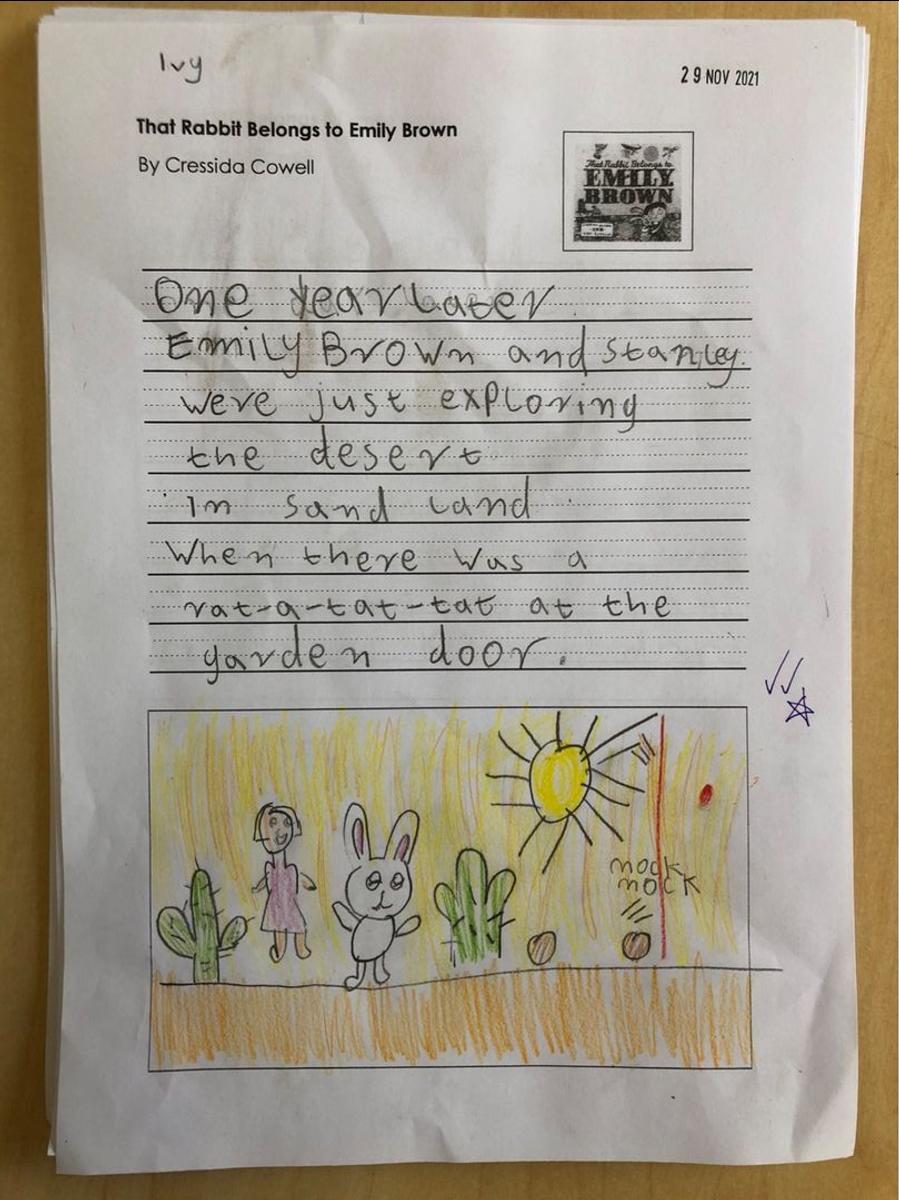 Ivy
29 NOV 2021
That Rabbit Belongs to Emily Brown
By Cressida Cowell
That Rabbit Belongs to
EMILY
BROWN
One year Later
Emily Brown and Stanley.
were just exploring
the desert
in sand land.
When there was a
rat-a-tat-tat at the
garden door.
nock
nock